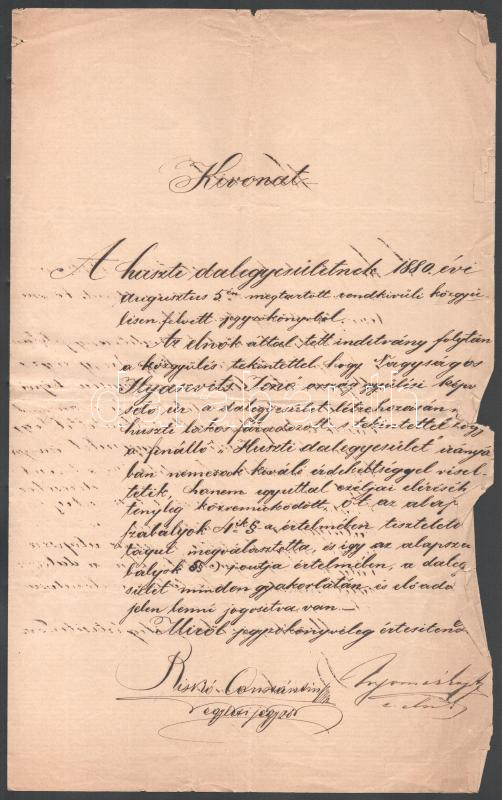 Kivonat
A huszti dalegyesületnek 1880. évi
augusztus 5én megtartott rendkivüli közgyü-
lésen felvett jegyzőkönyvből.
Az elnök által tett inditvány folytán
a közgyülés tekintettel hogy Nagyságos
Ilyasevits országgyülési képvi-
selő úr a dalegyesület létrehozásán
huszti tekintettel hogy
a fenálló „Huszti dalegyesület" irányá-
ban nemcsak kiváló érdekeltséggel visel-
tetik, hanem egyuttal czéljai elérését
tényleg közremüködött, őt az alap-
szabályok 4ik § a értelmében tiszteletb.
tagul megválasztotta, és igy az alapsza-
bályok pontja értelmében, a daleg-
sület minden gyakorlatán és előadá
jelen lenni jogositva van. —
Miről jegyzőkönyvileg értesitend
Riskó Constántin
egyleti jegyző
elnök